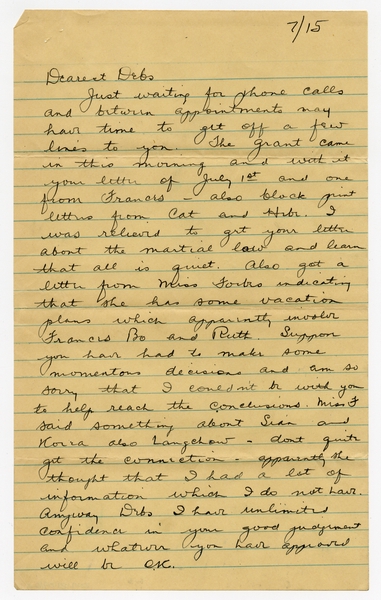 7/15
Dearest Debs
Just waiting for phone calls
and between appointments may
have time to get off a few
lines to you. The Grant came
in this morning and with it
your letter of July 1st and one
from Frances - also block print
letters from Cat and Hibr. I
was relieved to get your letter
about the martial law and learn
that all is quiet. Also got a
letter from Miss Forbes indicating
that she has some vacation
plans which apparently involve
Frances Bo and Ruth Suppose
you have had to make some
momentous decisions and am so
sorry that I couldn't be with you
to help reach the conclusions. Miss F
said something about Sian and
Korea also Langchow - dont quite
get the connection - apparently she
thought that I had a lot of
information which I do not have.
Anyway Debs I have unlimited
confidence in your good judgement
and whatever you have approved
will be OK.